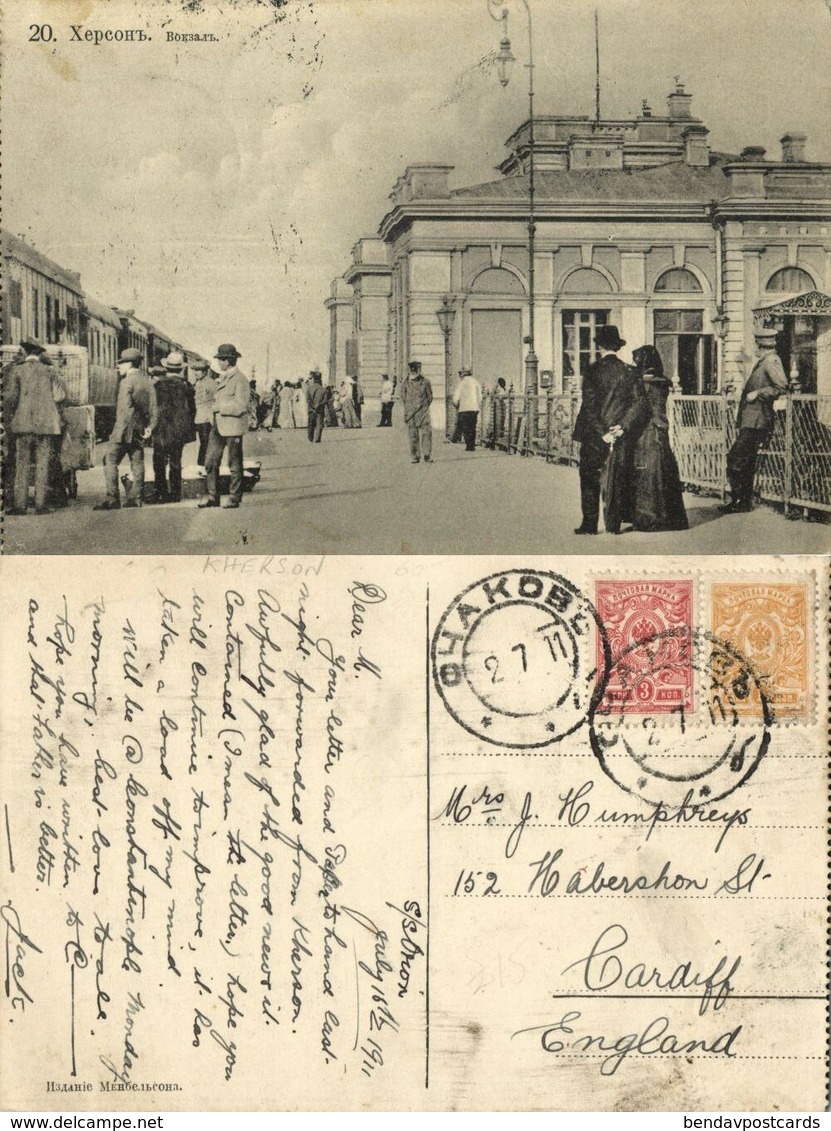 20. Херсонъ. Вокзалъ.
KHERSON
S/S Orion
July 15th 1911
Dear M.
Your letter and to hand last
night forwarded from Kherson.
Awfully glad of the good news it
Contained (I mean the letter,) hope you
will continue to improve, it has
taken a load off my mind
Will be @ Konstantinople Monday
morning, best love to all
hope you have written to C—
and that Father is better.
Jack.
Изданіе Менбельсона.
ОЧАКОВЪ
2 7 11
ПОЧТОВАЯ МАРКА
ТРИ 3 КОП.
ПОЧТОВАЯ МАРКА
2 7 11
Mrs J. Humphreys
152 Habershon St.
Cardiff
England
bendavpostcards.com
bendavpostcards